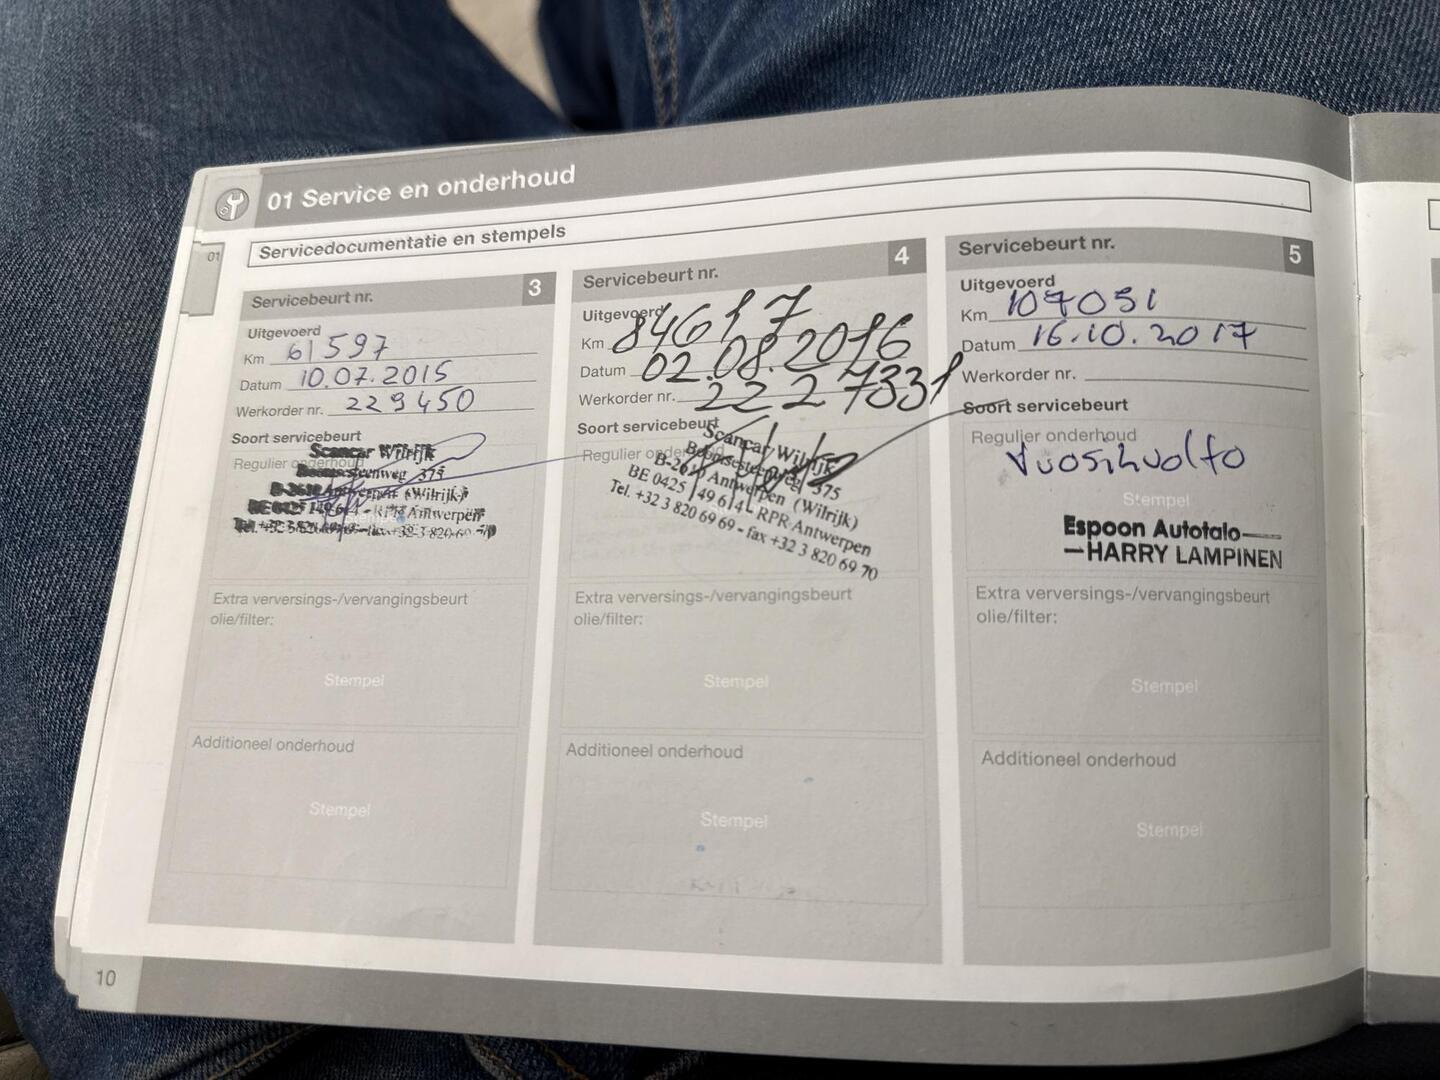 01 Service en onderhoud
01
Servicedocumentatie en stempels
Servicebeurt nr. 3
Uitgevoerd
Km 61597
Datum 10.07.2015
Werkorder nr. 229450
Soort servicebeurt
Regulier onderhoud
Scancar Wilrijk
Boomsesteenweg 375
B-2610 Antwerpen (Wilrijk)
BE 0425 149 614 - RPR Antwerpen
Tel. +32 3 820 69 69 - fax +32 3 820 69 70
Extra verversings-/vervangingsbeurt
olie/filter:
Stempel
Additioneel onderhoud
Stempel
Servicebeurt nr. 4
Uitgevoerd
Km 84617
Datum 02.08.2016
Werkorder nr. 2227331
Soort servicebeurt
Regulier onderhoud
Scancar Wilrijk
Boomsesteenweg 375
B-2610 Antwerpen (Wilrijk)
BE 0425 149 614 - RPR Antwerpen
Tel. +32 3 820 69 69 - fax +32 3 820 69 70
Extra verversings-/vervangingsbeurt
olie/filter:
Stempel
Additioneel onderhoud
Stempel
Servicebeurt nr. 5
Uitgevoerd
Km 107051
Datum 16.10.2017
Werkorder nr.
Soort servicebeurt
Regulier onderhoud
Vuosihuolto
Stempel
Espoon Autotalo
HARRY LAMPINEN
Extra verversings-/vervangingsbeurt
olie/filter:
Stempel
Additioneel onderhoud
Stempel
10